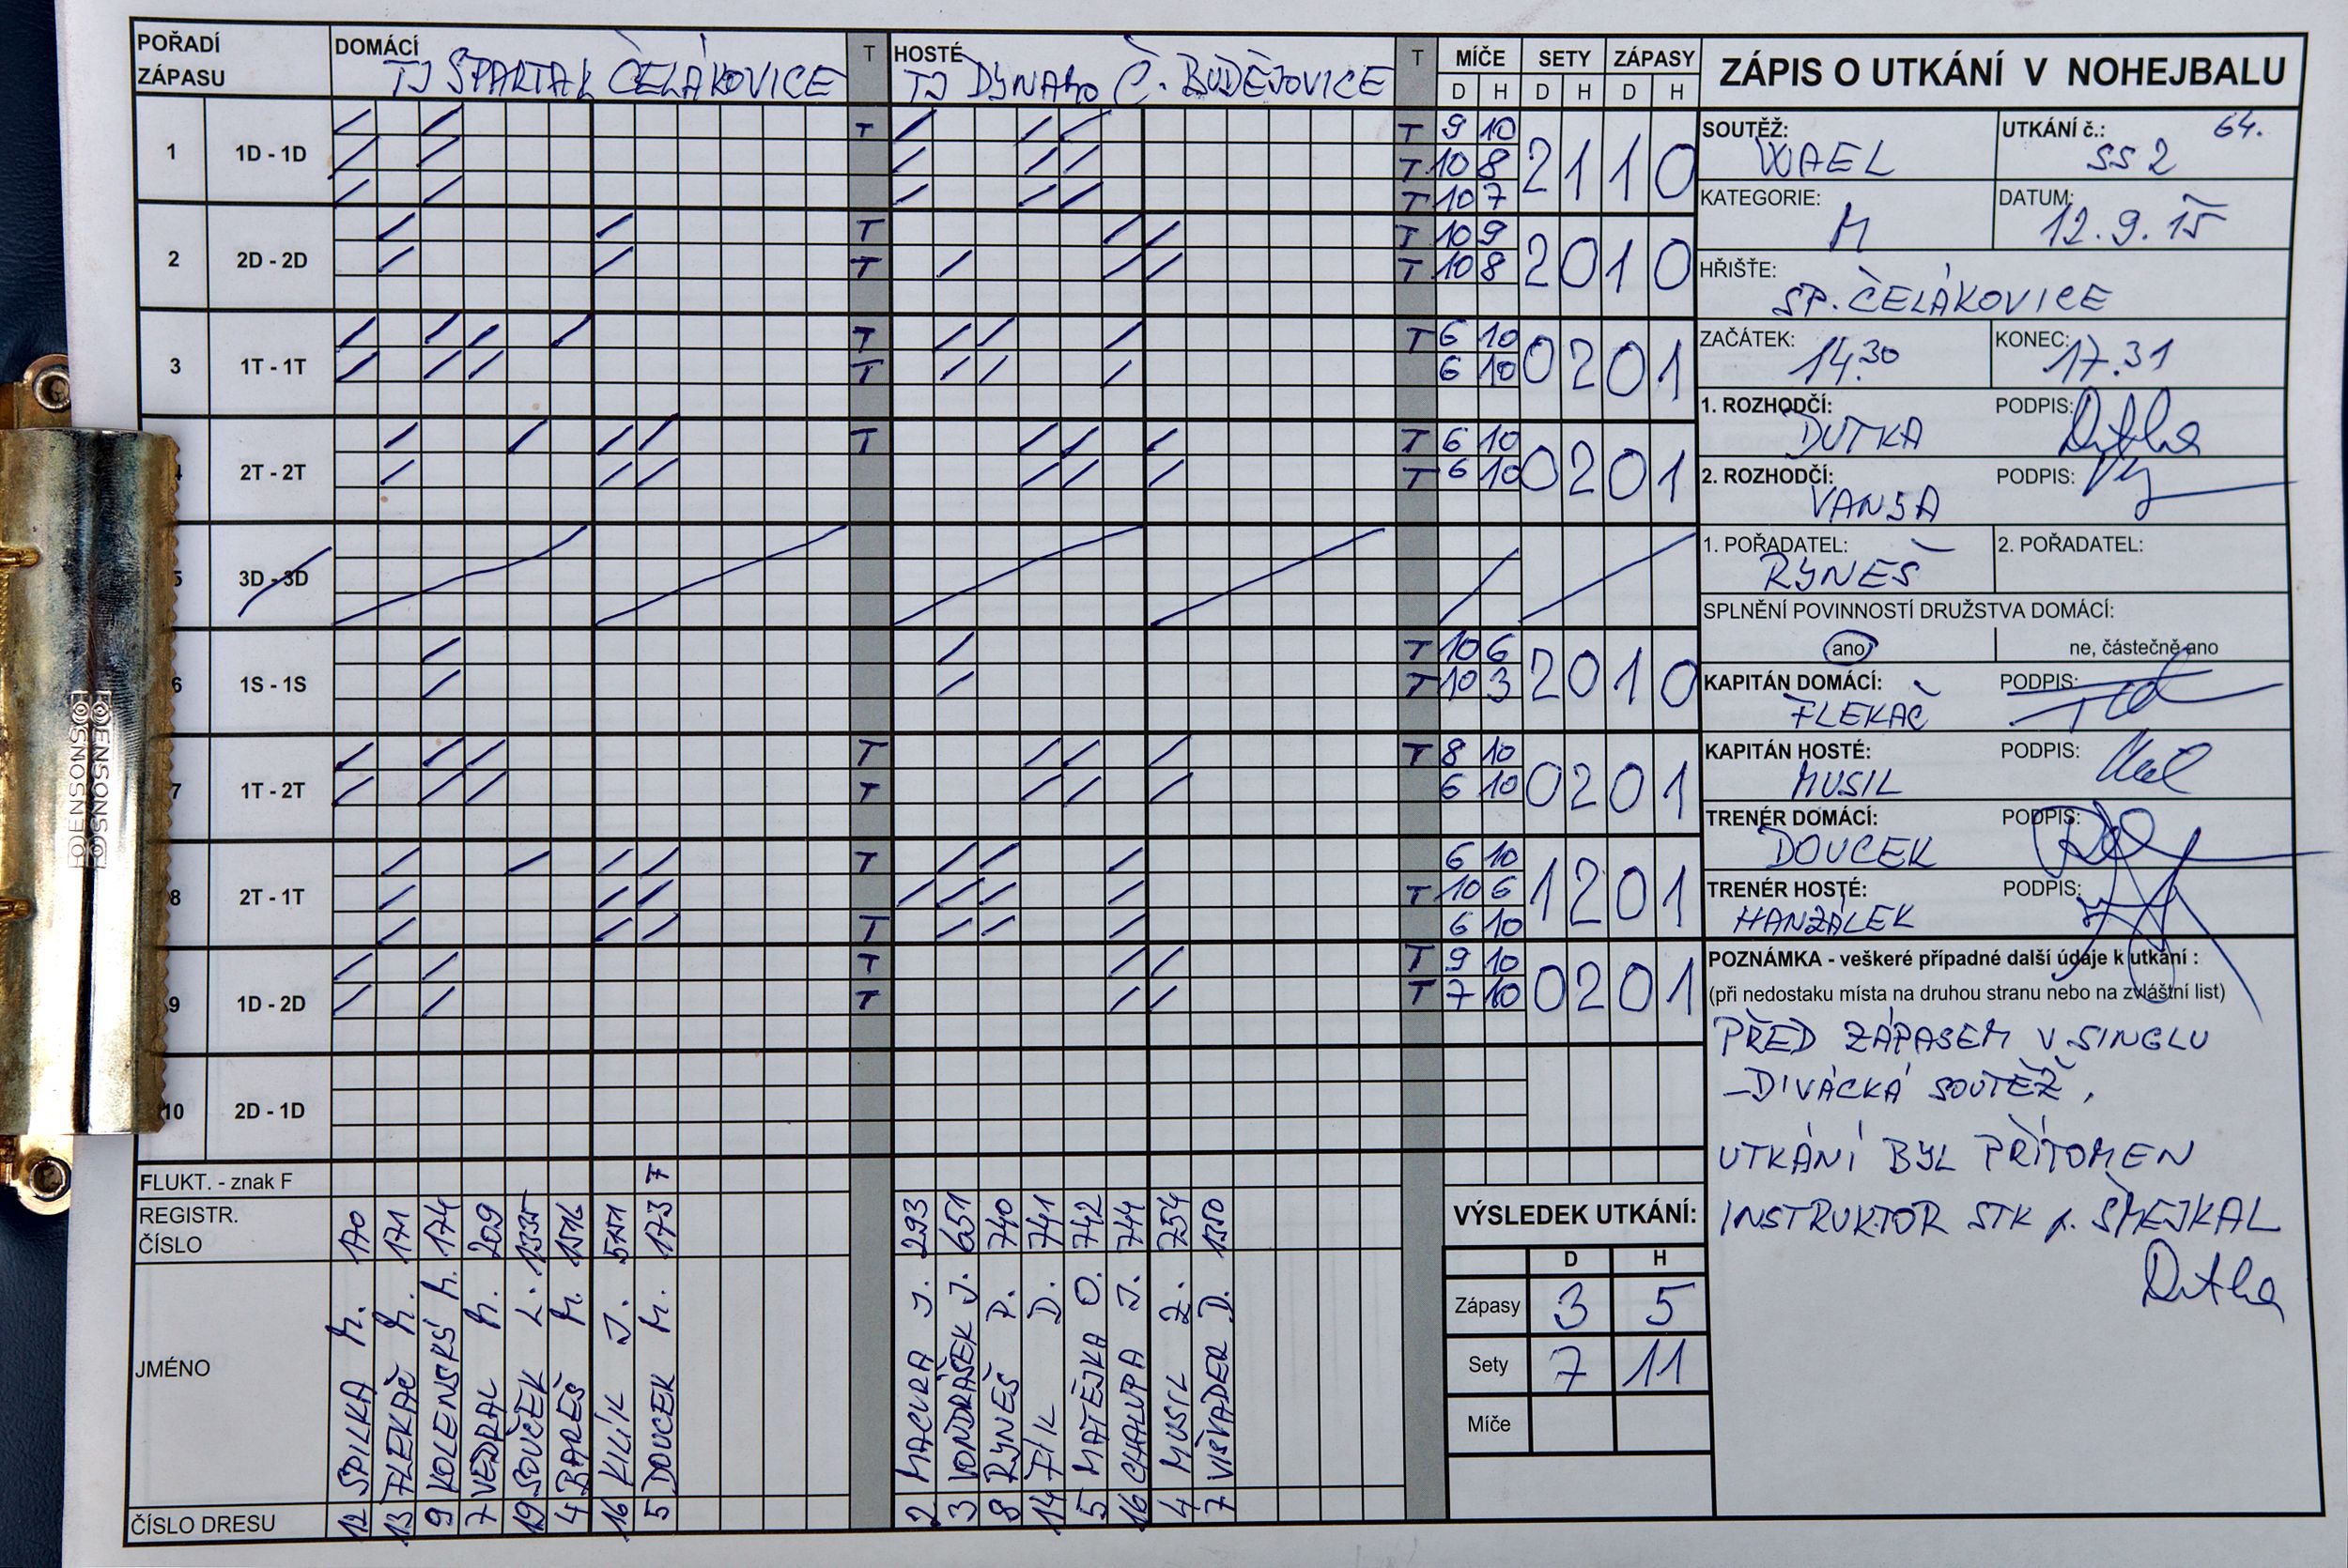 POŘADÍ
ZÁPASU
DOMÁCÍ
TJ SPARTAK ČELÁKOVICE
T
HOSTÉ
TJ DYNAMO Č. BUDĚJOVICE
T
MÍČE SETY ZÁPASY
D H D H D H
1 1D - 1D T T 9 10 2 1 1 0
T 10 8
T 10 7
2 2D - 2D T T 10 9 2 0 1 0
T T 10 8
3 1T - 1T T T 6 10 0 2 0 1
T 6 10
4 2T - 2T T T 6 10 0 2 0 1
T 6 10
5 3D - 3D
6 1S - 1S T 10 6 2 0 1 0
T 10 3
7 1T - 2T T T 8 10 0 2 0 1
T 6 10
8 2T - 1T T 6 10 1 2 0 1
T 10 6
T 6 10
9 1D - 2D T T 9 10 0 2 0 1
T T 7 10
10 2D - 1D
FLUKT. - znak F
F
REGISTR.
ČÍSLO
170 171 174 209 1335 1516 5151 173
293 651 740 741 742 744 754 1350
JMÉNO
SPILKA M.
FLEKAČ M.
KOLENSKÝ M.
VEDRAL M.
SOUČEK L.
BAREŠ M.
KILÍK J.
DOUCEK M.
MACURA J.
VONDRÁŠEK J.
RYNEŠ P.
FÍK D.
MATĚJKA O.
CHALUPA J.
MUSIL Z.
VIŠVADER D.
ČÍSLO DRESU
12 13 9 7 19 4 16 5
2 3 8 14 5 16 4 7
VÝSLEDEK UTKÁNÍ:
D H
Zápasy 3 5
Sety 7 11
Míče
ZÁPIS O UTKÁNÍ V NOHEJBALU
SOUTĚŽ: WAEL
UTKÁNÍ č.: 64.
SS 2
KATEGORIE: M
DATUM: 12.9.15
HŘIŠTE:
SP. ČELÁKOVICE
ZAČÁTEK: 14.30
KONEC: 17.31
1. ROZHODČÍ: DUTKA
PODPIS: Dutka
2. ROZHODČÍ: VANSA
PODPIS:
1. POŘADATEL: RYNEŠ
2. POŘADATEL:
SPLNĚNÍ POVINNOSTÍ DRUŽSTVA DOMÁCÍ:
ano ne, částečně ano
KAPITÁN DOMÁCÍ: FLEKAČ
PODPIS:
KAPITÁN HOSTÉ: MUSIL
PODPIS:
TRENÉR DOMÁCÍ: DOUCEK
PODPIS:
TRENÉR HOSTÉ: HANZÁLEK
PODPIS:
POZNÁMKA - veškeré případné další údaje k utkání :
(při nedostaku místa na druhou stranu nebo na zvláštní list)
PŘED ZÁPASEM V SINGLU
-DIVÁCKÁ SOUTĚŽ,
UTKÁNÍ BYL PŘÍTOMEN
INSTRUKTOR STK p. ŠMEJKAL
Dutka
SONSNED